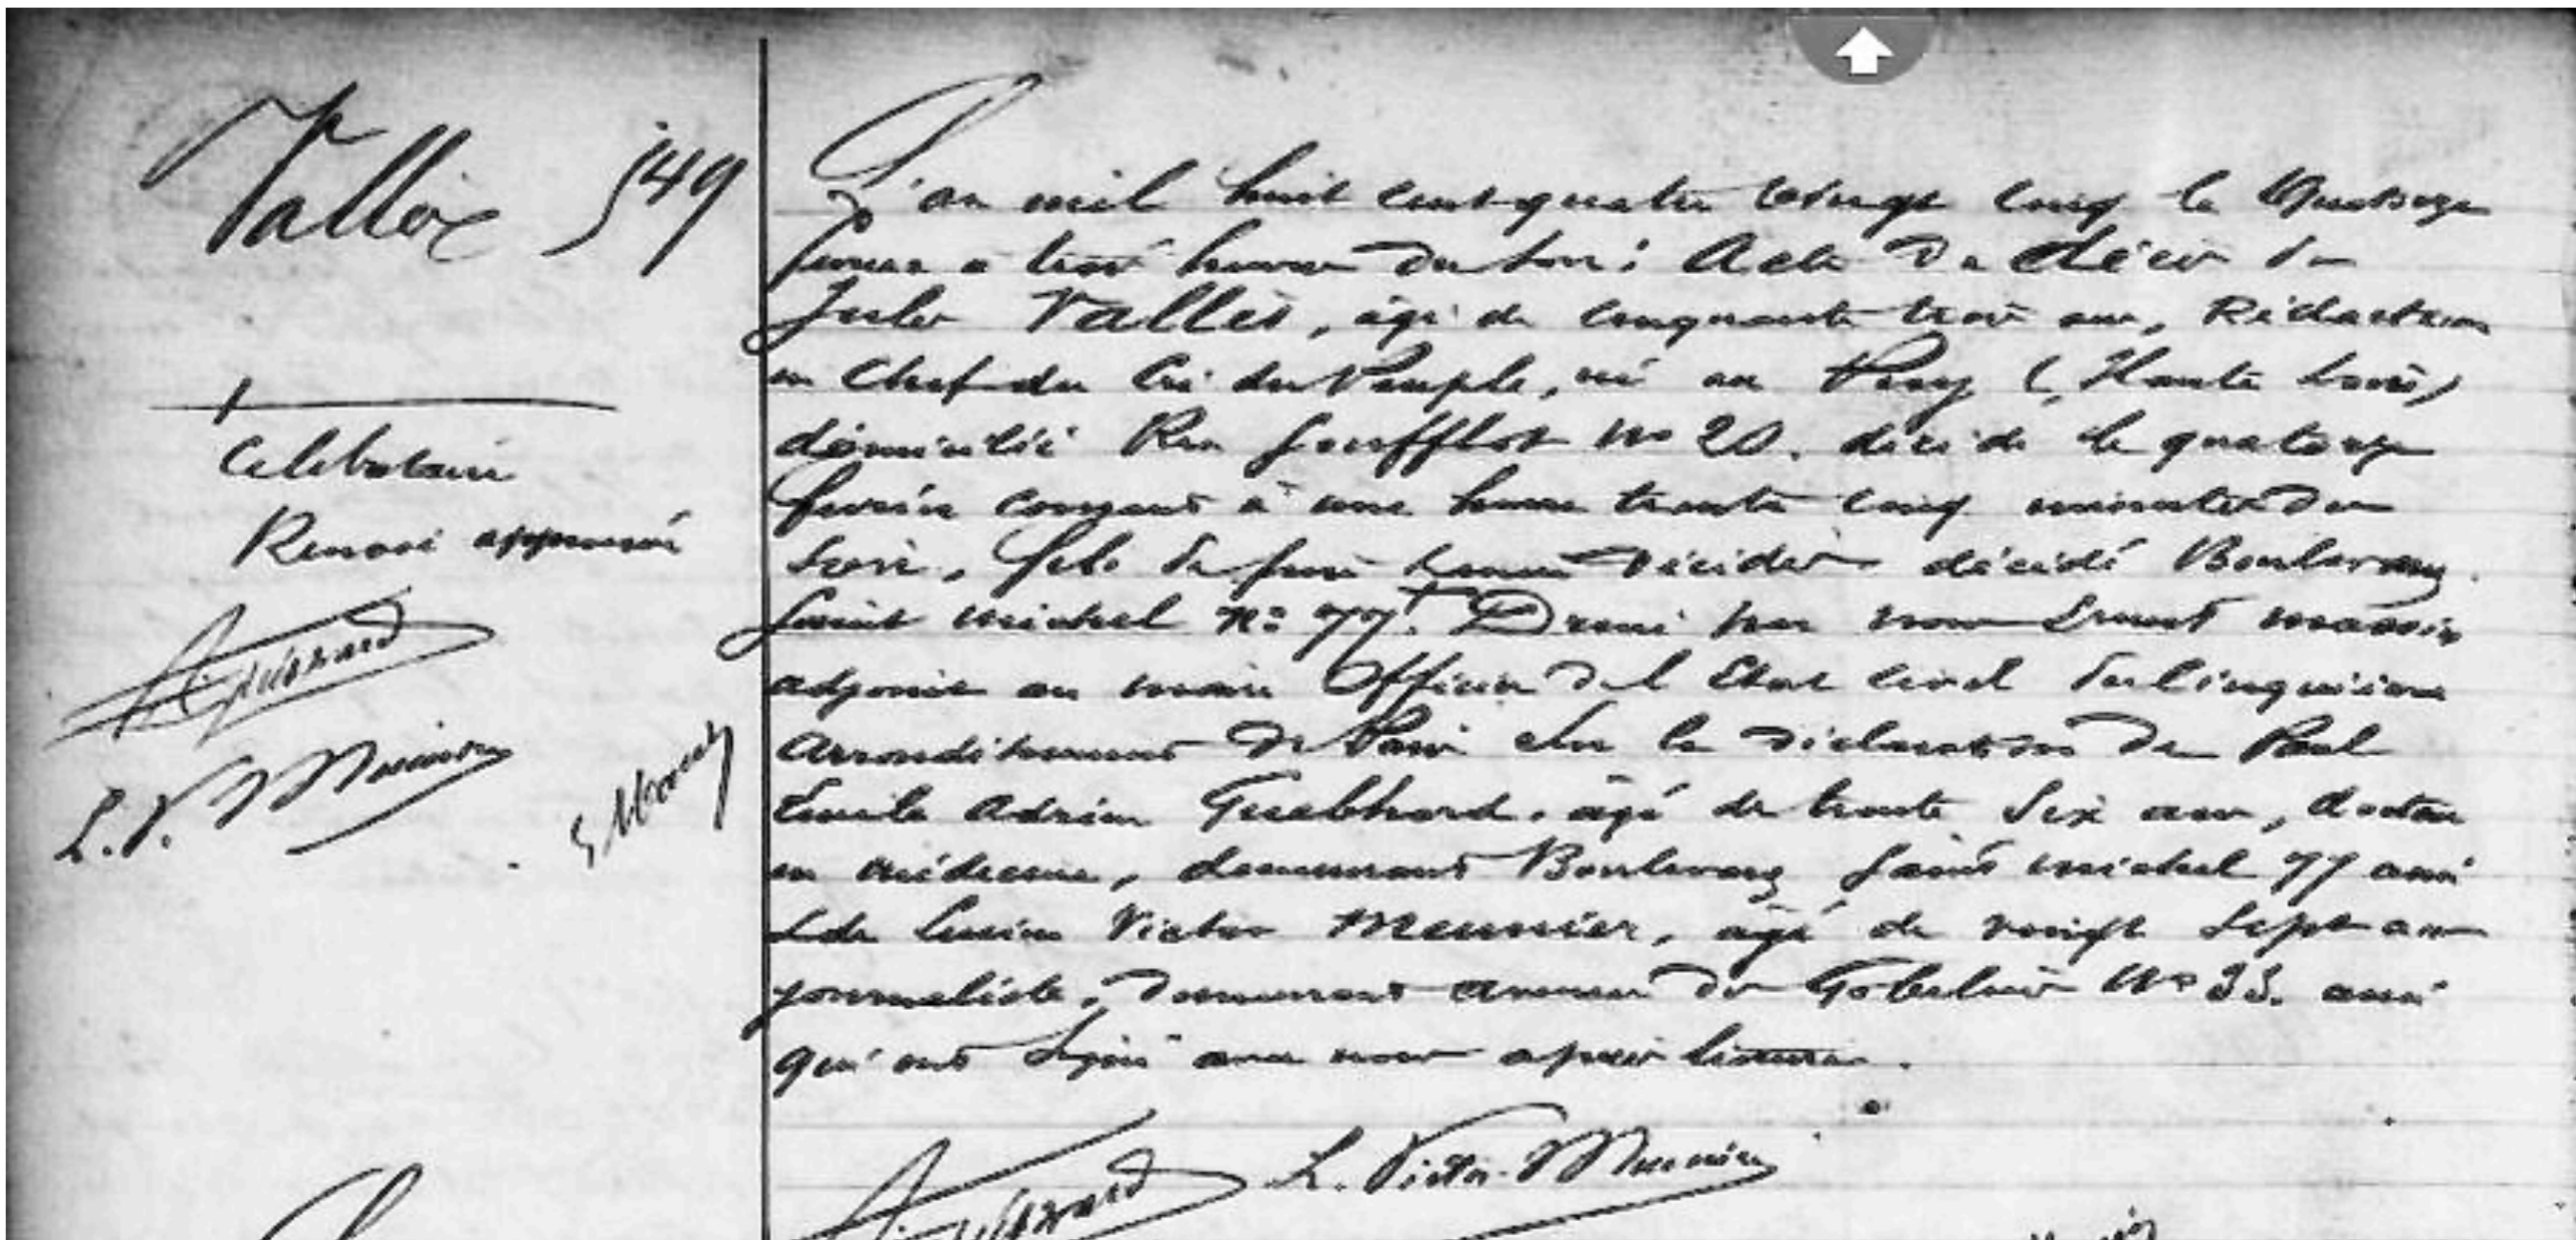 Vallès 549
Célibataire
Renvoi approuvé
L. V. Meunier
L'an mil huit cent quatre vingt cinq le Quatorze
février à trois heures du soir: Acte de décès de
Jules Vallès, âgé de cinquante trois ans, Rédacteur
en Chef du Cri du Peuple, né au Puy (Haute Loire)
domicilié Rue Soufflot No 20. décédé le quatorze
février courant à une heure trente cinq minutes du
soir, fils de décédés décédé Boulevard
Saint michel no 77. Dressé par nous Ernest massin
adjoint au maire Officier de l'Etat civil du cinquième
arrondissement de Paris sur la déclaration de Paul
Emile Adrien Guebhard, âgé de trente six ans, docteur
en médecine, demeurant Boulevard Saint michel 77 ami
& de Lucien Victor Meunier, âgé de vingt sept ans
journaliste, demeurant avenue des Gobelins No 33. ami
qui ont signé avec nous après lecture.
L. Victor-Meunier